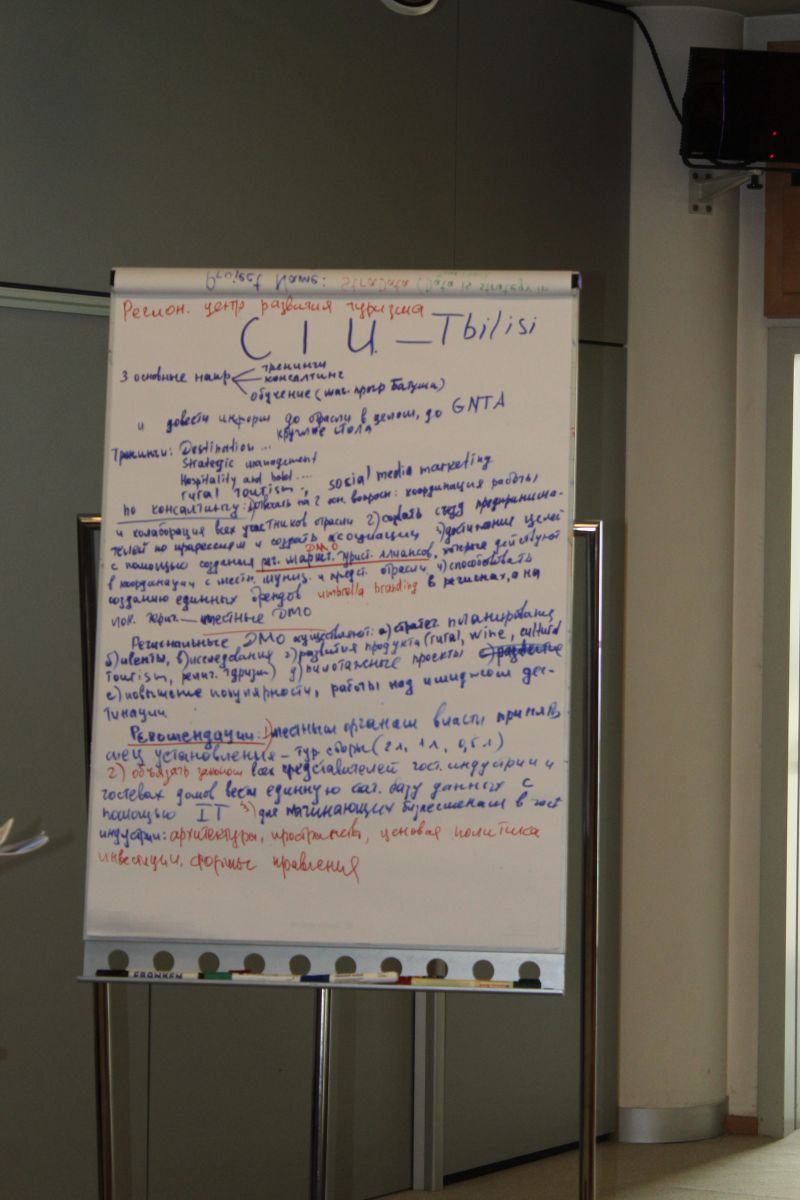 Project Name: StraData (Data is strategy in
Регион. центр развития туризма
CIU – Tbilisi
3 основные напр
тренинги
консалтинг
обучение (маг. прогр Батуми)
и довести информ до отрасли в целом, до GNTA
круглые стола
Тренинги: Destination ...
Strategic management
Hospitality and hotel ....
rural tourism, social media marketing
по консалтингу: на 2 осн. вопроси: координация работы
и колаборация всех участников отрасли 2) создать среду предпринима-
телей по профессиям и создать ассоциации 3) достижение целей
DMO
с помощью создания рег. маркт. турист. альянсов, которые действуют
в координации с местн. муниц. и предст. отрасли 4) способствовать
созданию единных брендов umbrella branding в регионах, а на
лок. террит. — местные DMO
Региональные DMO осуществляют: а) стратег планирование
б) ивенты, в) исследования г) развития продукта (rural, wine, cultural
tourism, религ. туризм) д) пилотажные проекты
е) повышение популярности, работы над имиджом дес-
тинации
Рекомендации: 1) местным органам власти принять
спец установления – тур сборы (2 л, 1 л, 0,5 л)
2) обьязать законом всех представителей гост. индустрии и
гостевых домов вести единную стат. базу данных с
помощью IT 3) для начинающих бизнесменам в гост
индустрии: архитектуры, пространства, ценовая политика
инвестиции, формы правления
FRANKEN